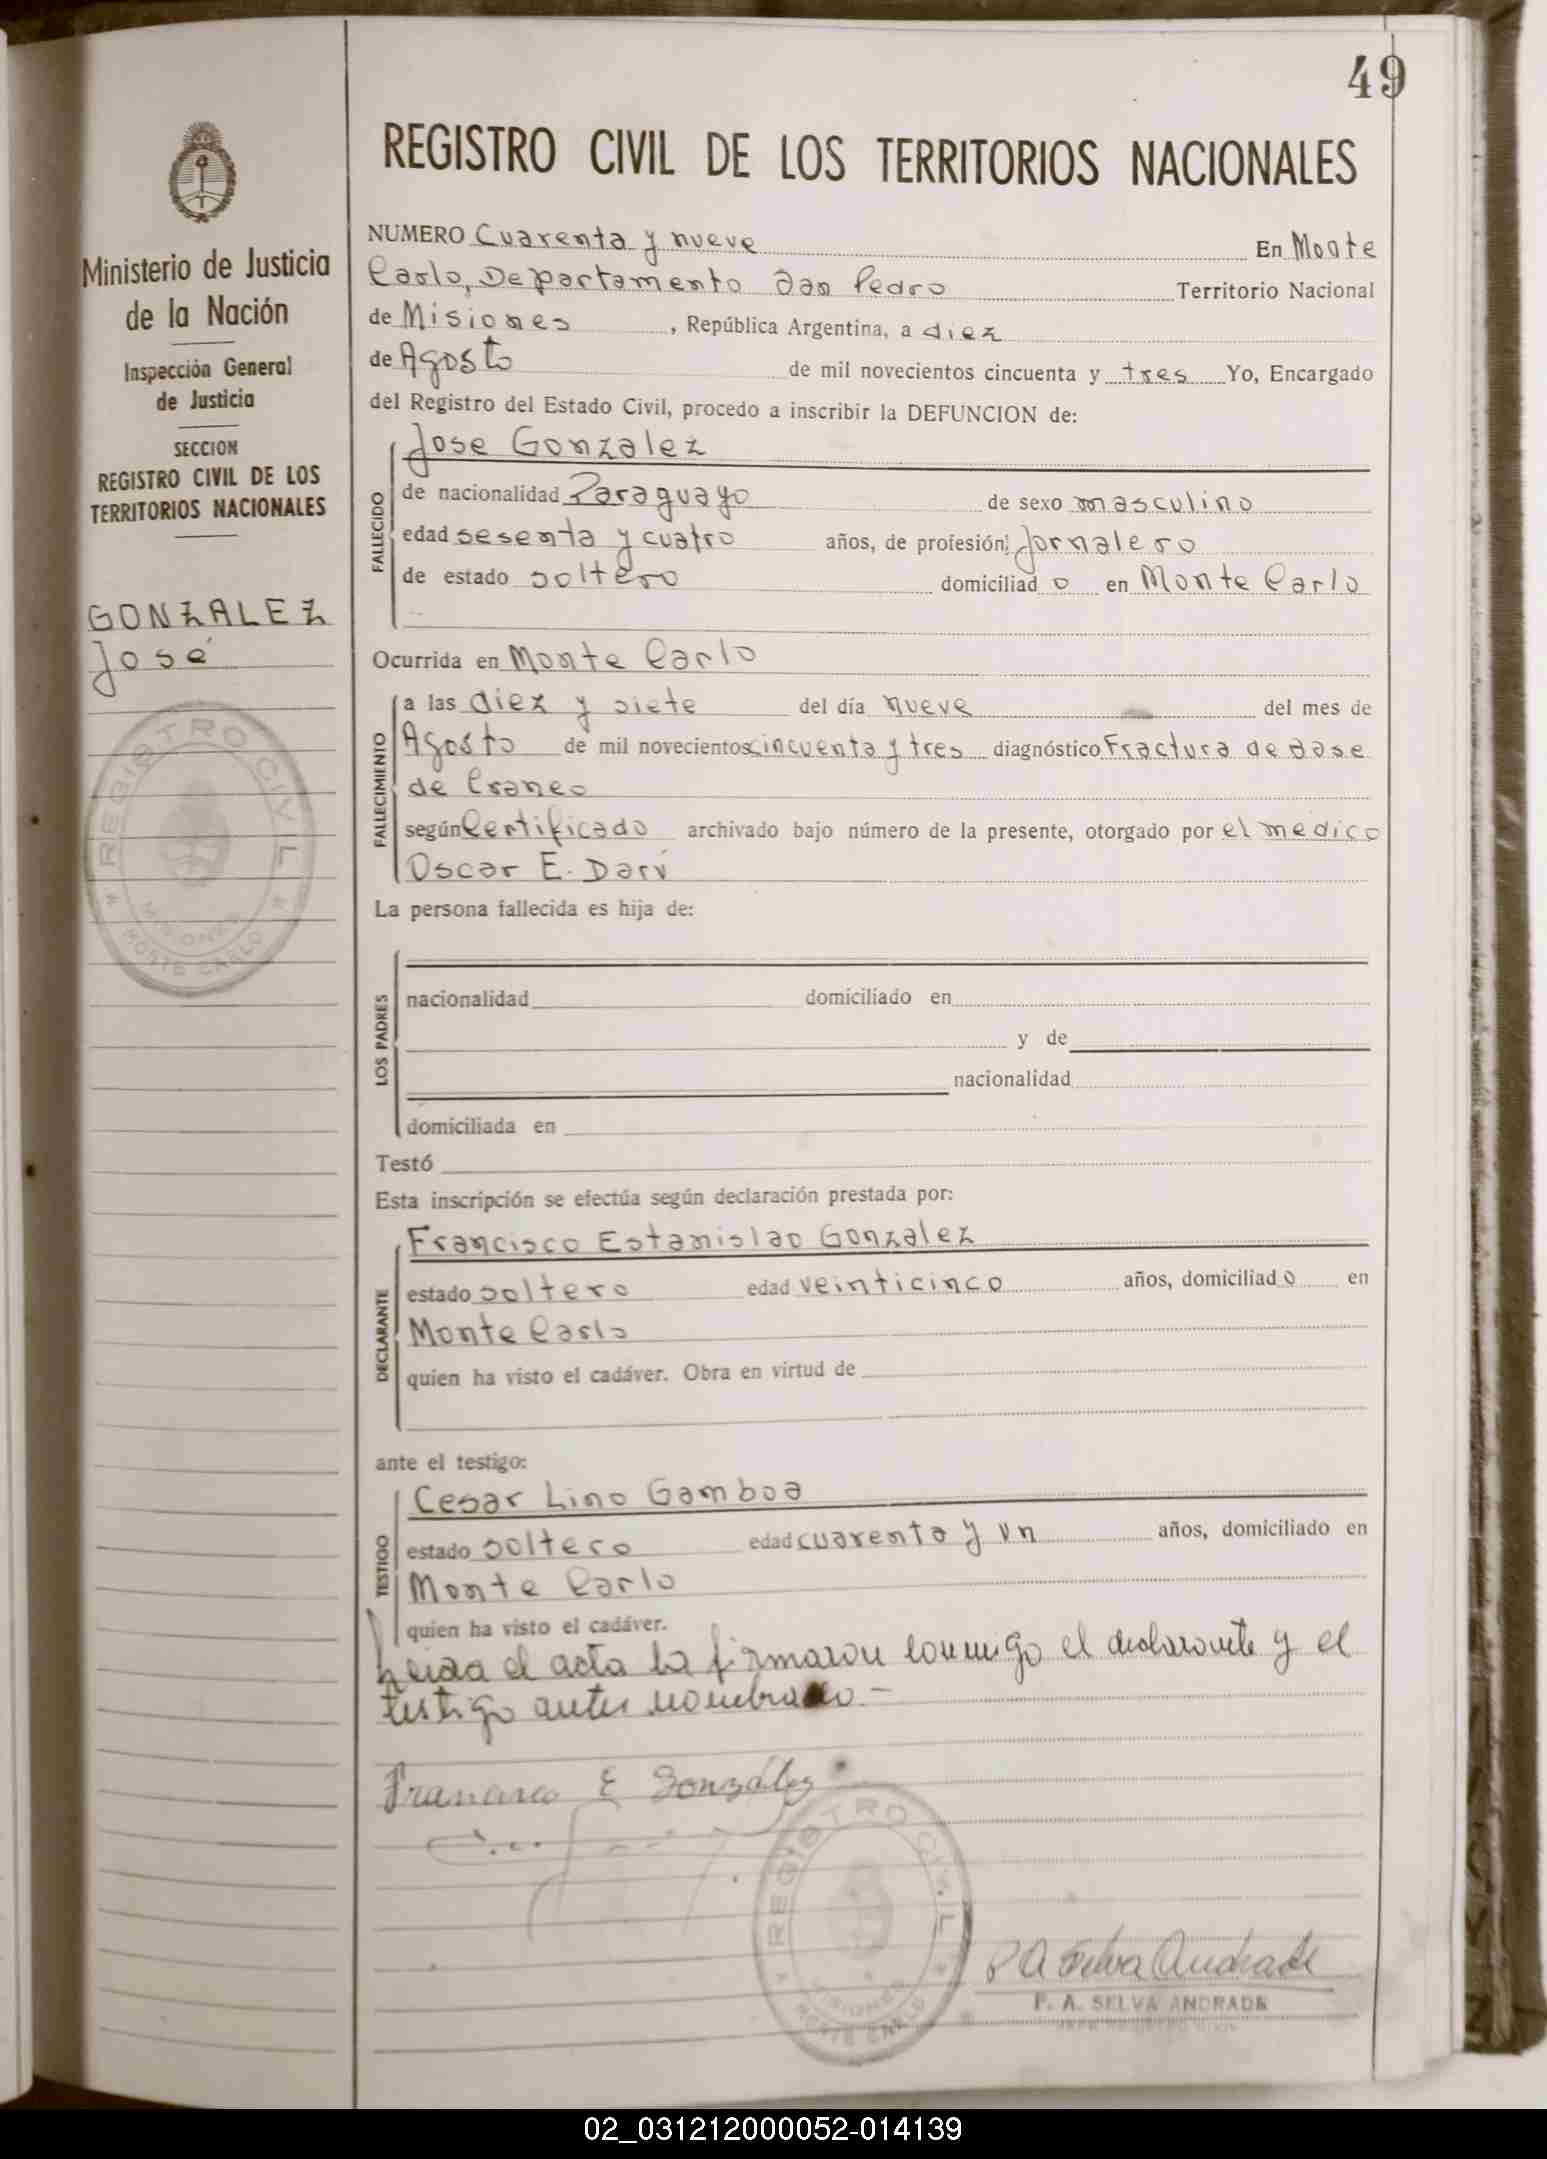 49
REGISTRO CIVIL DE LOS TERRITORIOS NACIONALES
Ministerio de Justicia
de la Nación
Inspección General
de Justicia
SECCION
REGISTRO CIVIL DE LOS
TERRITORIOS NACIONALES
GONZALEZ
José
REGISTRO CIVIL
MISIONES
MONTE CARLO
NUMERO Cuarenta y nueve En Monte
Carlo, Departamento San Pedro Territorio Nacional
de Misiones , República Argentina, a diez
de Agosto de mil novecientos cincuenta y tres Yo, Encargado
del Registro del Estado Civil, procedo a inscribir la DEFUNCION de:
Jose Gonzalez
FALLECIDO
de nacionalidad Paraguayo de sexo masculino
edad sesenta y cuatro años, de profesión: Jornalero
de estado soltero domiciliad o en Monte Carlo
Ocurrida en Monte Carlo
FALLECIMIENTO
a las diez y siete del día nueve del mes de
Agosto de mil novecientos cincuenta y tres diagnóstico Fractura de base
de Craneo
según Certificado archivado bajo número de la presente, otorgado por el medico
Oscar E. Darú
La persona fallecida es hija de:
LOS PADRES
nacionalidad domiciliado en
y de
nacionalidad
domiciliada en
Testó
Esta inscripción se efectúa según declaración prestada por:
Francisco Estanislao Gonzalez
DECLARANTE
estado soltero edad veinticinco años, domiciliad o en
Monte Carlo
quien ha visto el cadáver. Obra en virtud de
ante el testigo:
Cesar Lino Gamboa
TESTIGO
estado soltero edad cuarenta y un años, domiciliado en
Monte Carlo
quien ha visto el cadáver.
Leida el acta la firmaron conmigo el declarante y el
testigo antes nombrado.-
Francisco E González
REGISTRO CIVIL
MISIONES
MONTE CARLO
P A Selva Andrade
P. A. SELVA ANDRADE
02_031212000052-014139